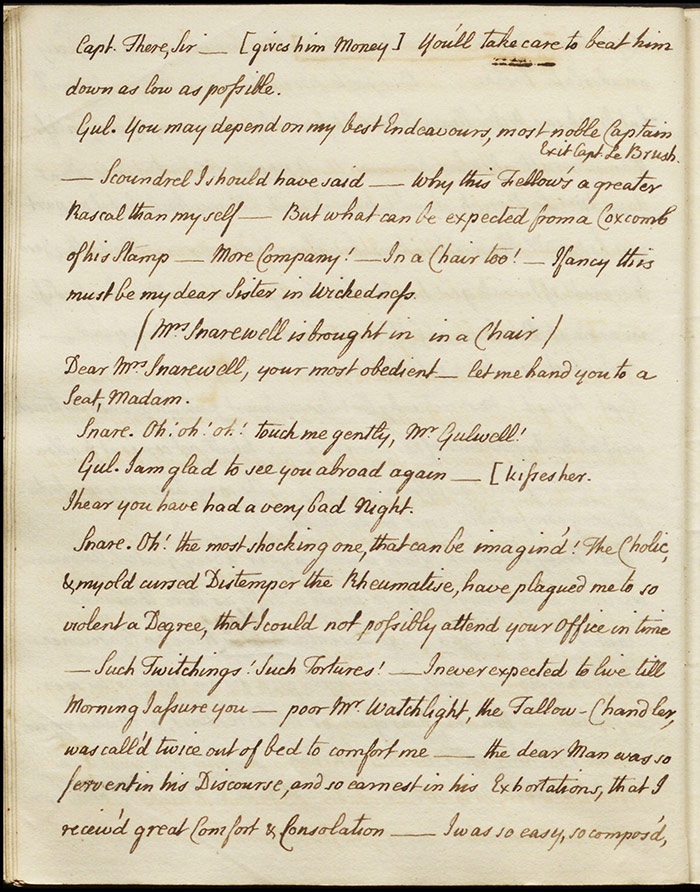 Capt. There, Sir — [gives him Money] You'll take care to beat him
down as low as possible.
Gul. You may depend on my best Endeavours, most noble Captain
Exit Capt. Le Brush.
— Scoundrel I should have said — Why this Fellow's a greater
Rascal than myself — But what can be expected from a Coxcomb
of his Stamp — More Company! — In a Chair too! — I fancy this
must be my dear Sister in Wickedness.
(Mrs Snarewell is brought in in a Chair)
Dear Mrs Snarewell, your most obedient — let me hand you to a
Seat, Madam.
Snare. Oh! oh! oh! touch me gently, Mr Gulwell!
Gul. I am glad to see you abroad again — [kisses her.
I hear you have had a very bad Night.
Snare. Oh! the most shocking one, that can be imagin'd! The Cholic,
& my old cursed Distemper the Rheumatise, have plagued me to so
violent a Degree, that I could not possibly attend your Office in time
— Such Twitchings! Such Tortures! — I never expected to live till
Morning I assure you — poor Mr. Watchlight, the Tallow-Chandler,
was call'd twice out of bed to comfort me — the dear Man was so
fervent in his Discourse, and so earnest in his Exhortations, that I
receiv'd great Comfort & Consolation — I was so easy, so compos'd,